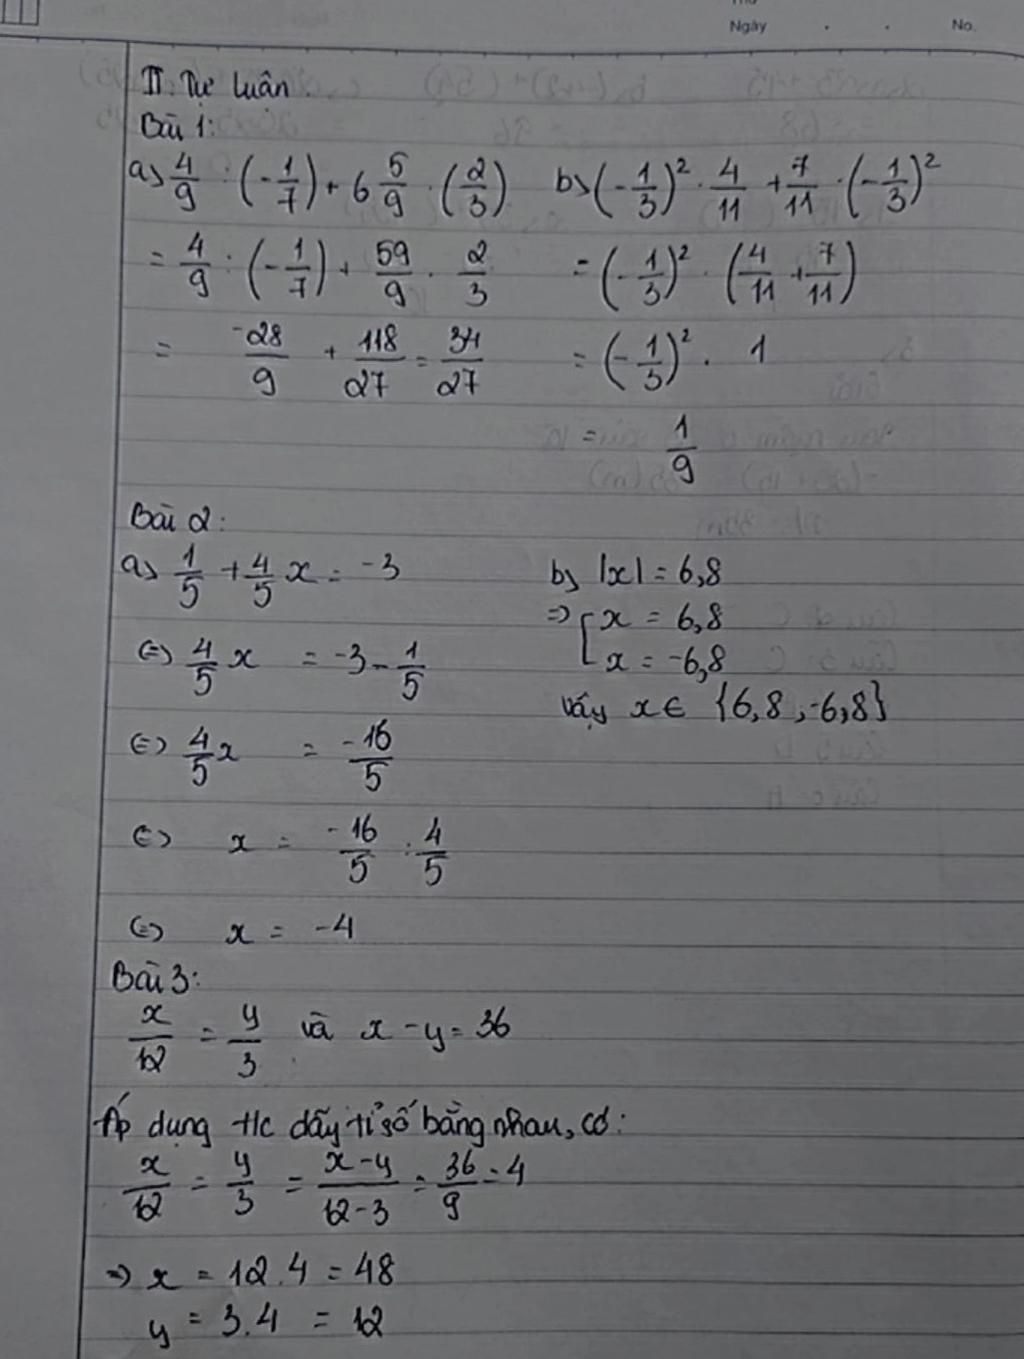 Ngày . . No.
II. Tự luân.
Bài 1:
a) 4/9 : (-1/7) + 6 5/9 . (2/3)
= 4/9 : (-1/7) + 59/9 . 2/3
= -28/9 + 118/27 = 34/27
b) (-1/3)² . 4/11 + 7/11 . (-1/3)²
= (-1/3)² . (4/11 + 7/11)
= (-1/3)² . 1
= 1/9
Bài 2:
a) 1/5 + 4/5 x = -3
(=) 4/5 x = -3 - 1/5
(=) 4/5 x = -16/5
(=) x = -16/5 : 4/5
(=) x = -4
b) |x| = 6,8
=> [ x = 6,8
x = -6,8
vậy x ∈ {6,8 , -6,8}
Bài 3:
x/12 = y/3 và x - y = 36
Áp dụng t/c dãy tỉ số bằng nhau, có:
x/12 = y/3 = x-y/12-3 = 36/9 = 4
=> x = 12.4 = 48
y = 3.4 = 12